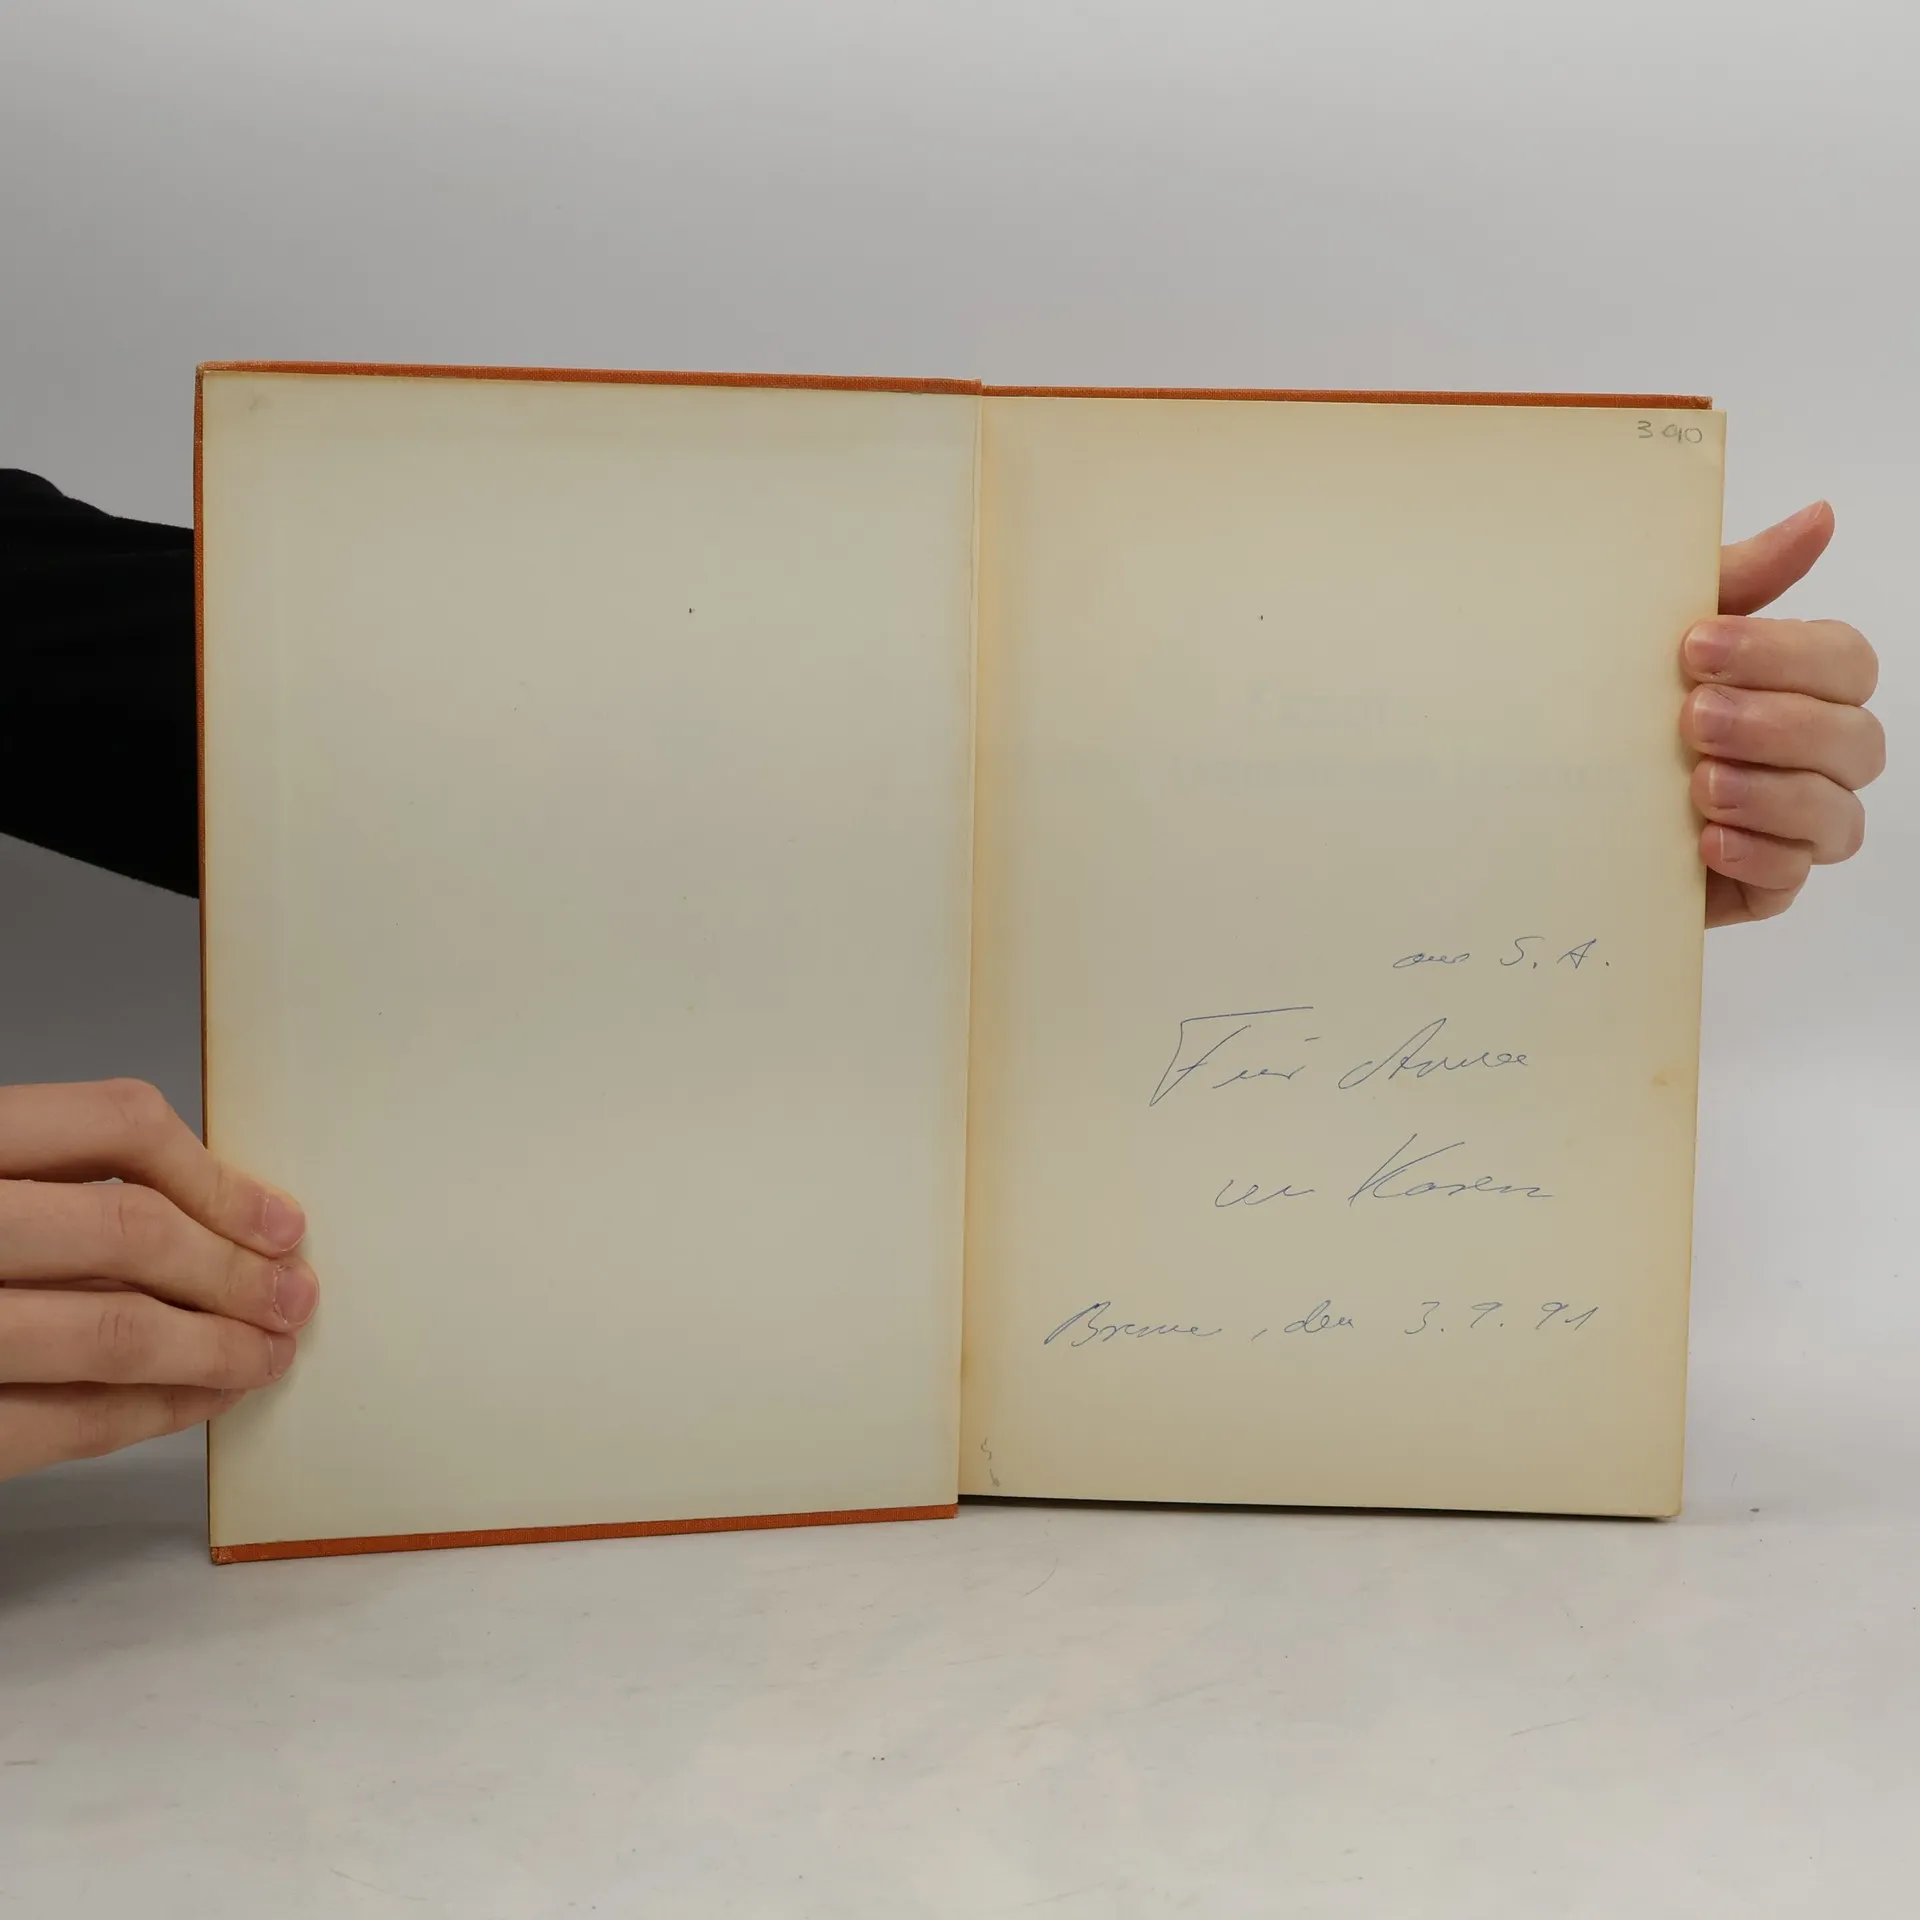 3 90
aus S. A.
Für Anna
von Karen
Bremen, den 3. 9. 91